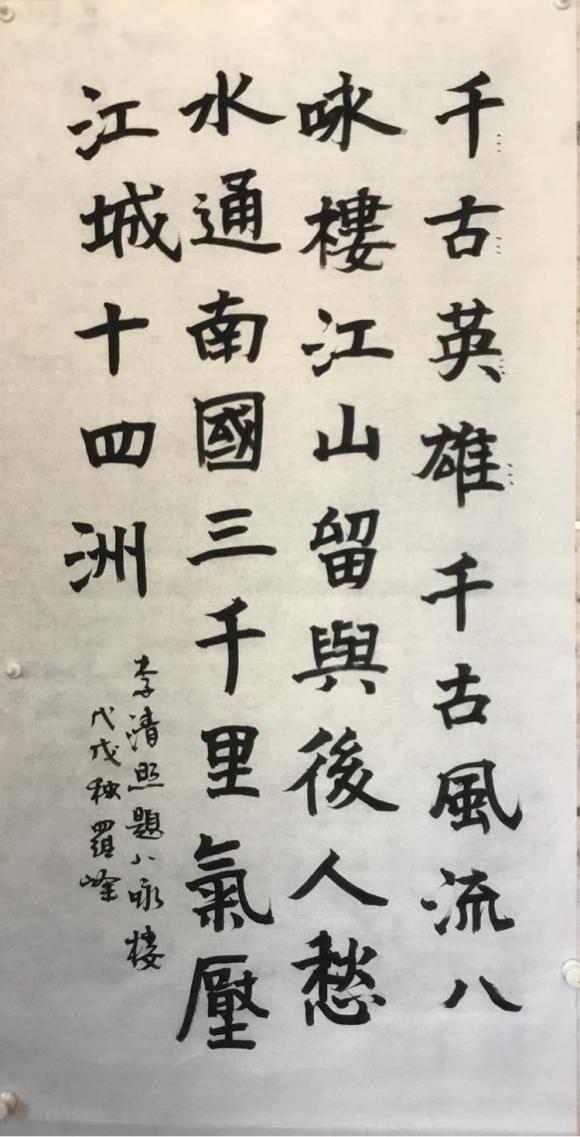 千古英雄千古風流八
咏樓江山留與後人愁
水通南國三千里氣壓
江城十四洲
李清照題八咏楼
戊戌秋羅峰